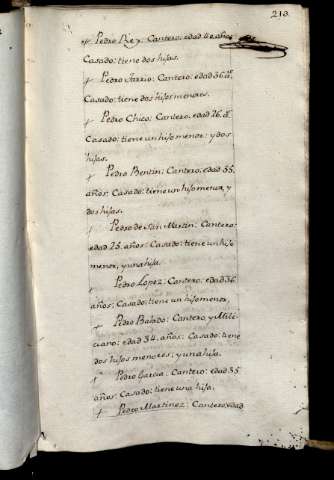 213.
+ Pedro Rey: Cantero: edad 40 años
Casado: tiene dos hijas.
+ Pedro Jarrio: Cantero: edad 36 as.
Casado: tiene dos hijos menores.
+ Pedro Chico: Cantero, edad 26 as.
Casado: tiene un hijo menor: y dos
hijas.
+ Pedro Bentin: Cantero, edad 35,
años: Casado: tiene un hijo menor, y
dos hijas.
+ Pedro de San Martin: Cantero:
edad 25, años: Casado: tiene un hijo
menor, y una hija.
+ Pedro Lopez: Cantero: edad 36
años: Casado: tiene un hijo menor,
+ Pedro Balado: Cantero, y Mili-
ciano: edad 34, años: Casado: tiene
dos hijos menores; y una hija.
+ Pedro Garcia: Cantero: edad 35
años: Casado: tiene una hija.
+ Pedro Martinez: Cantero, edad